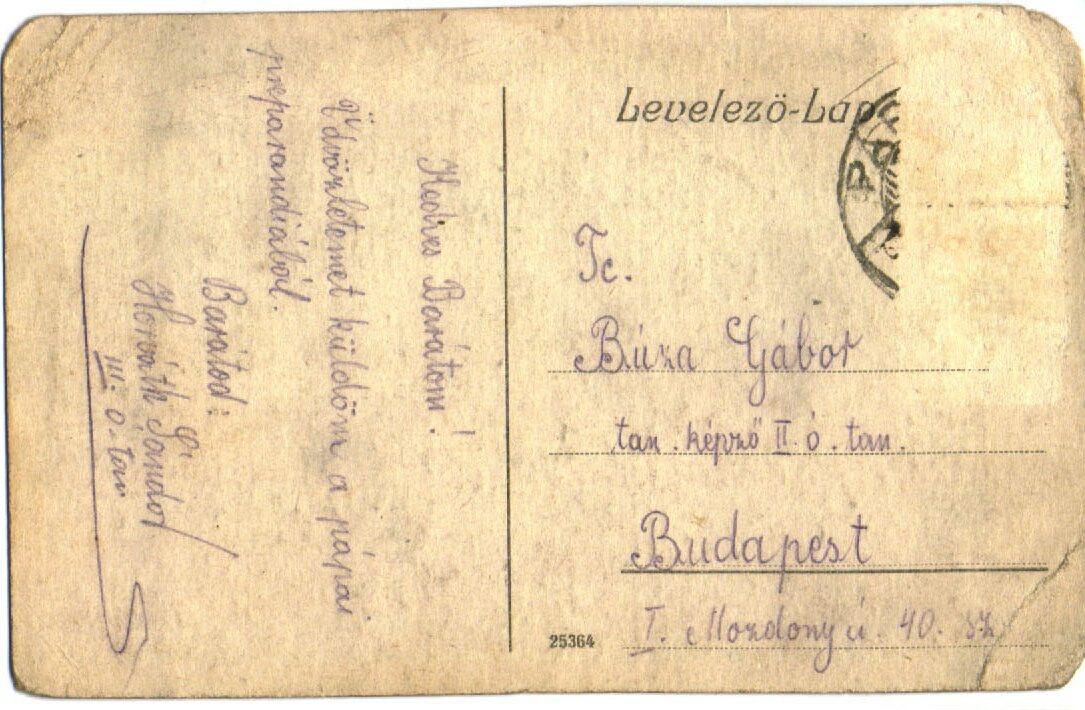 Levelező-Lap
PÁP
Kedves Barátom!
Üdvözletemet küldöm a pápai
preparandiából.
Barátod:
Horváth Sándor
III. o. tan
Tc.
Búza Gábor
tan. képző II. ó. tan.
Budapest
I. Mozdony ú. 40. sz
25364